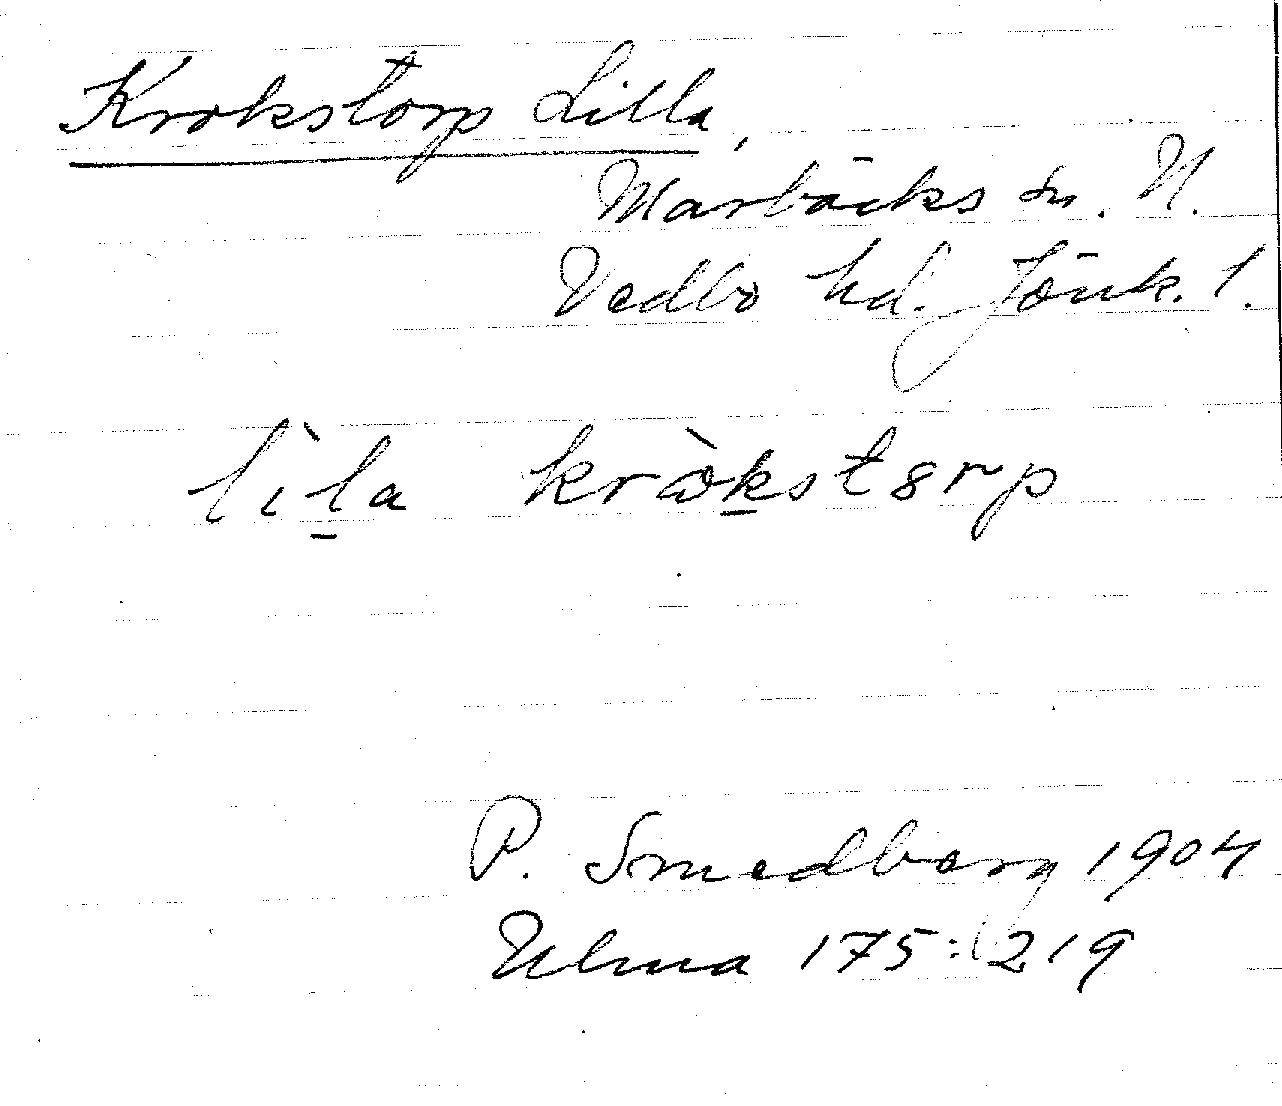 Krokstorp Lilla,
Marbäcks sn. N.
Vedbo hd. Jönk. l.
lìl̲a kròk̲st8rp
P. Smedberg 1904
Ulma 175:219